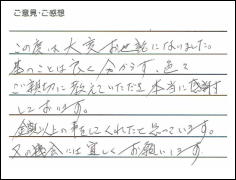 ご意見・ご感想
この度は大変お世話になりました。
墓のことは良く分からず、色々
ご親切に教えていただき本当に感謝
しております。
金額以上の事をしてくれたと思っています。
又の機会には宜しくお願いします